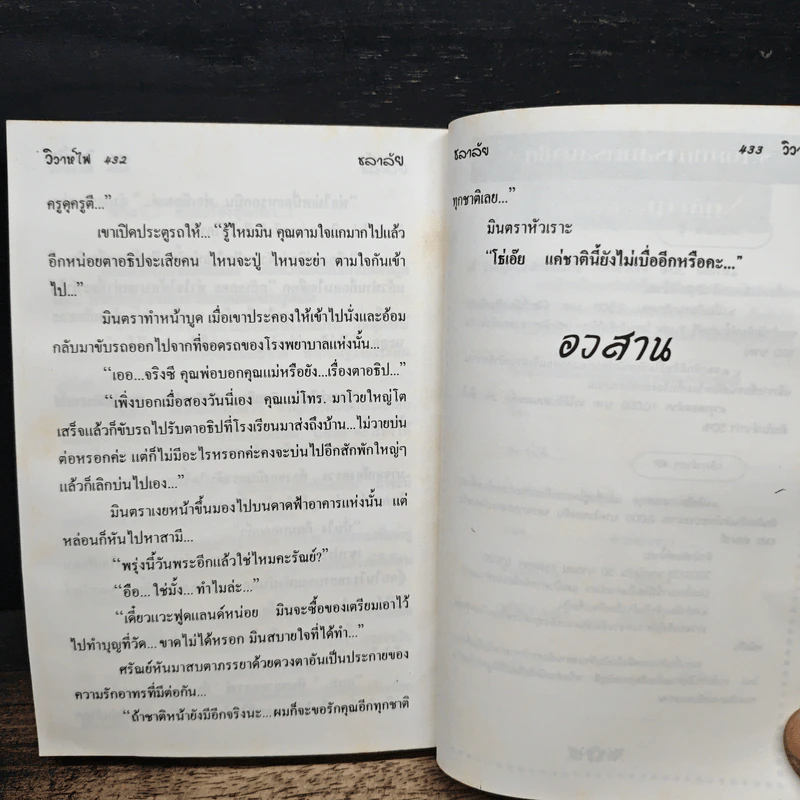 วิวาห์ไฟ 432 ชลาลัย
ครูคุครูตี..."
เขาเปิดประตูรถให้... "รู้ไหมมิน คุณตามใจแกมากไปแล้ว
อีกหน่อยตาอธิปจะเสียคน ไหนจะปู่ ไหนจะย่า ตามใจกันเข้า
ไป..."
มินตราทำหน้าบูด เมื่อเขาประคองให้เข้าไปนั่งและอ้อม
กลับมาขับรถออกไปจากที่จอดรถของโรงพยาบาลแห่งนั้น...
"เออ...จริงซี คุณพ่อบอกคุณแม่หรือยัง...เรื่องตาอธิป..."
"เพิ่งบอกเมื่อสองวันนี่เอง คุณแม่โทร. มาโวยใหญ่โต
เสร็จแล้วก็ขับรถไปรับตาอธิปที่โรงเรียนมาส่งถึงบ้าน...ไม่วายบ่น
ต่อหรอกค่ะ แต่ก็ไม่มีอะไรหรอกค่ะคงจะบ่นไปอีกสักพักใหญ่ๆ
แล้วก็เลิกบ่นไปเอง..."
มินตราเงยหน้าขึ้นมองไปบนดาดฟ้าอาคารแห่งนั้น แต่
หล่อนก็หันไปหาสามี...
"พรุ่งนี้วันพระอีกแล้วใช่ไหมคะรัณย์?"
"อือ...ใช่มั้ง...ทำไมล่ะ..."
"เดี๋ยวแวะฟูดแลนด์หน่อย มินจะซื้อของเตรียมเอาไว้
ไปทำบุญที่วัด...ขาดไม่ได้หรอก มินสบายใจที่ได้ทำ..."
ศรัณย์หันมาสบตาภรรยาด้วยดวงตาอันเป็นประกายของ
ความรักอาทรที่มีต่อกัน...
"ถ้าชาติหน้ายังมีอีกจริงนะ...ผมก็จะขอรักคุณอีกทุกชาติ
ชลาลัย 433 วิวา
ทุกชาติเลย..."
มินตราหัวเราะ
"โธ่เอ๊ย แค่ชาตินี้ยังไม่เบื่ออีกหรือคะ..."
อวสาน